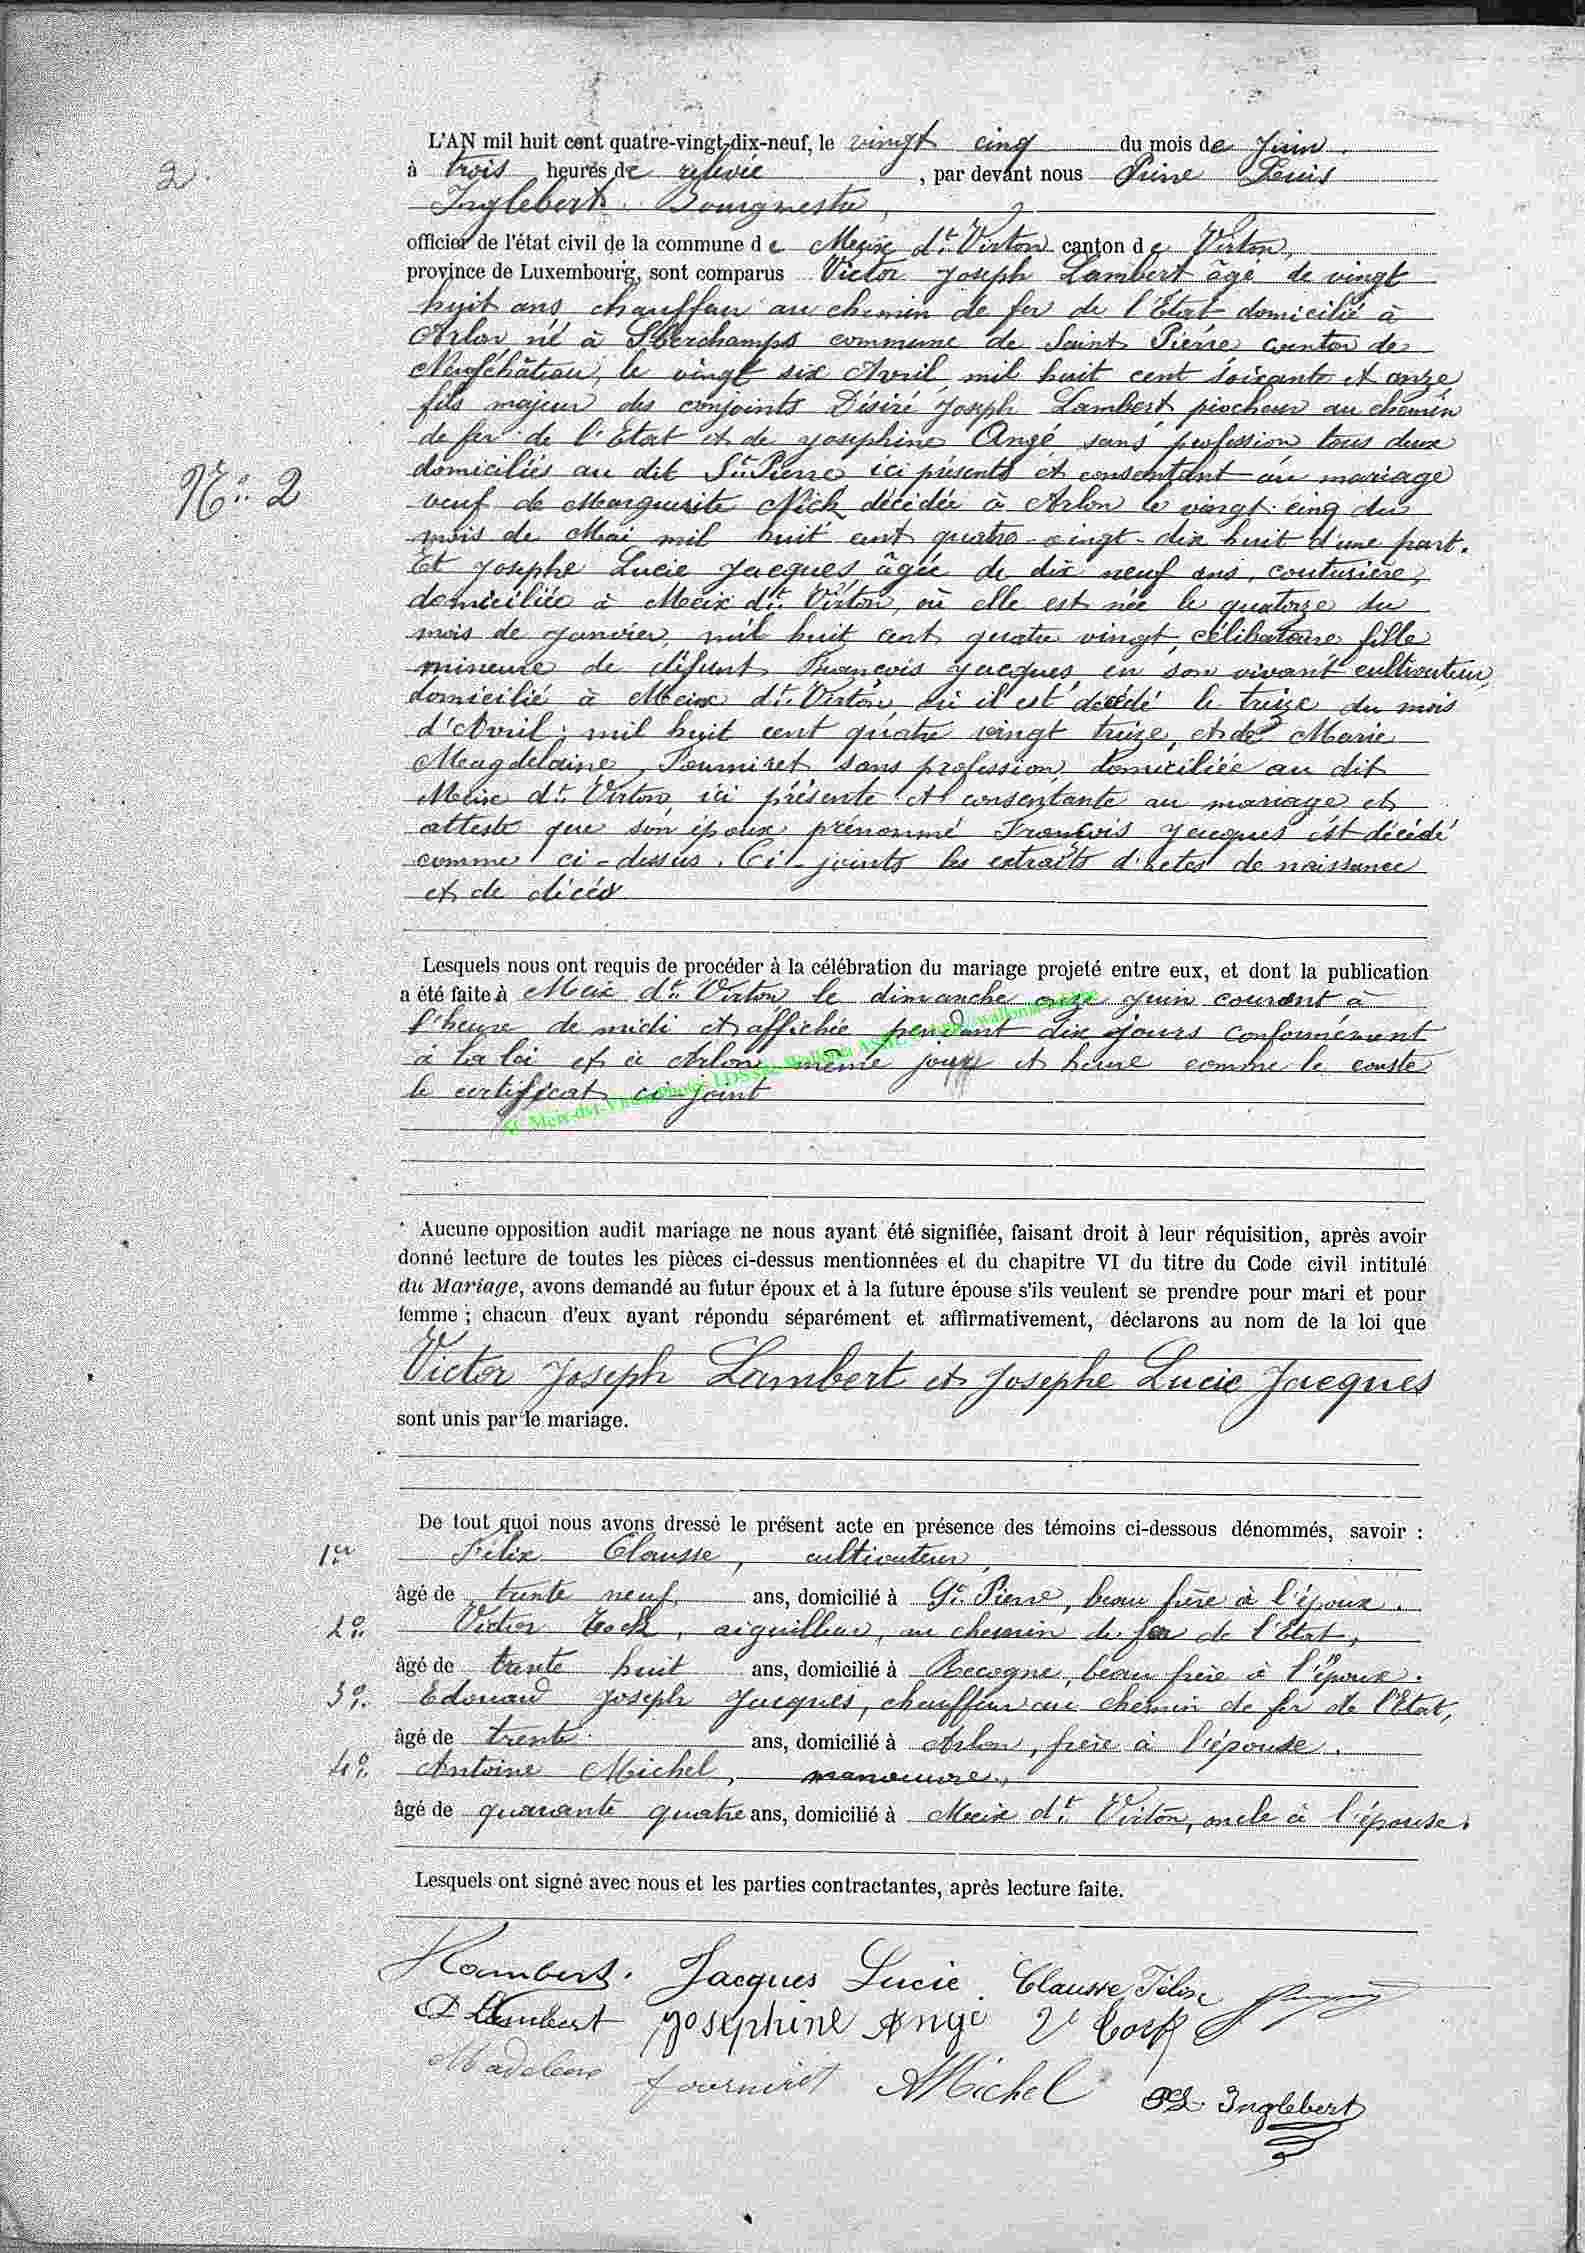 2.
L'AN mil huit cent quatre-vingt-dix-neuf, le vingt cinq du mois de Juin.
à trois heures de relevée, par devant nous Pierre Louis
Inglebert Bourgmestre,
officier de l'état civil de la commune de Meix dt. Virton canton de Virton,
province de Luxembourg, sont comparus Victor Joseph Lambert âgé de vingt
huit ans chauffeur au chemin de fer de l'Etat domicilié à
Arlon né à Sberchamps commune de Saint Pierre canton de
Neufchâteau, le vingt six Avril mil huit cent soixante et onze
fils majeur des conjoints Désiré Joseph Lambert piocheur au chemin
de fer de l'Etat et de Josephine Angé sans profession tous deux
domiciliés au dit St. Pierre ici présents et consentant au mariage
N° 2
veuf de Marguerite Nick décédée à Arlon le vingt-cinq du
mois de Mai mil huit cent quatre-vingt-dix huit d'une part.
Et Josephe Lucie Jacques, âgée de dix neuf ans, couturière,
domiciliée à Meix dt. Virton, où elle est née le quatorze du
mois de Janvier, mil huit cent quatre vingt, célibataire fille
mineure de défunt François Jacques, en son vivant cultivateur,
domicilié à Meix dt. Virton, où il est décédé le treize du mois
d'Avril, mil huit cent quatre vingt treize, et de Marie
Magdelaine, Fourniret sans profession, domiciliée au dit
Meix dt. Virton, ici présente et consentante au mariage et
atteste que son époux prénommé François Jacques est décédé
comme ci-dessus. Ci-joints les extraits d'actes de naissance
et de décès
Lesquels nous ont requis de procéder à la célébration du mariage projeté entre eux, et dont la publication
a été faite à Meix dt. Virton le dimanche onze Juin courant à
l'heure de midi et affichée pendant dix jours conformément
à la loi et à Arlon même jour et heure comme le conste
le certificat ci-joint
Aucune opposition audit mariage ne nous ayant été signifiée, faisant droit à leur réquisition, après avoir
donné lecture de toutes les pièces ci-dessus mentionnées et du chapitre VI du titre du Code civil intitulé
du Mariage, avons demandé au futur époux et à la future épouse s'ils veulent se prendre pour mari et pour
femme ; chacun d'eux ayant répondu séparément et affirmativement, déclarons au nom de la loi que
Victor Joseph Lambert et Josephe Lucie Jacques
sont unis par le mariage.
De tout quoi nous avons dressé le présent acte en présence des témoins ci-dessous dénommés, savoir :
1er Félix Clausse, cultivateur,
âgé de trente neuf ans, domicilié à St. Pierre, beau frère à l'époux.
2o. Victor Cock, aiguilleur, au chemin de fer de l'Etat,
âgé de trente huit ans, domicilié à Recogne, beau frère à l'époux.
3o. Edouard Joseph Jacques, chauffeur au chemin de fer de l'Etat,
âgé de trente ans, domicilié à Arlon, frère à l'épouse.
4o. Antoine Michel, manoeuvre,
âgé de quarante quatre ans, domicilié à Meix dt. Virton, oncle à l'épouse.
Lesquels ont signé avec nous et les parties contractantes, après lecture faite.
VLambert. Jacques Lucie Clausse Félix
D Lambert Josephine Angé V Cock
Madeleine fourniret AMichel PL Inglebert